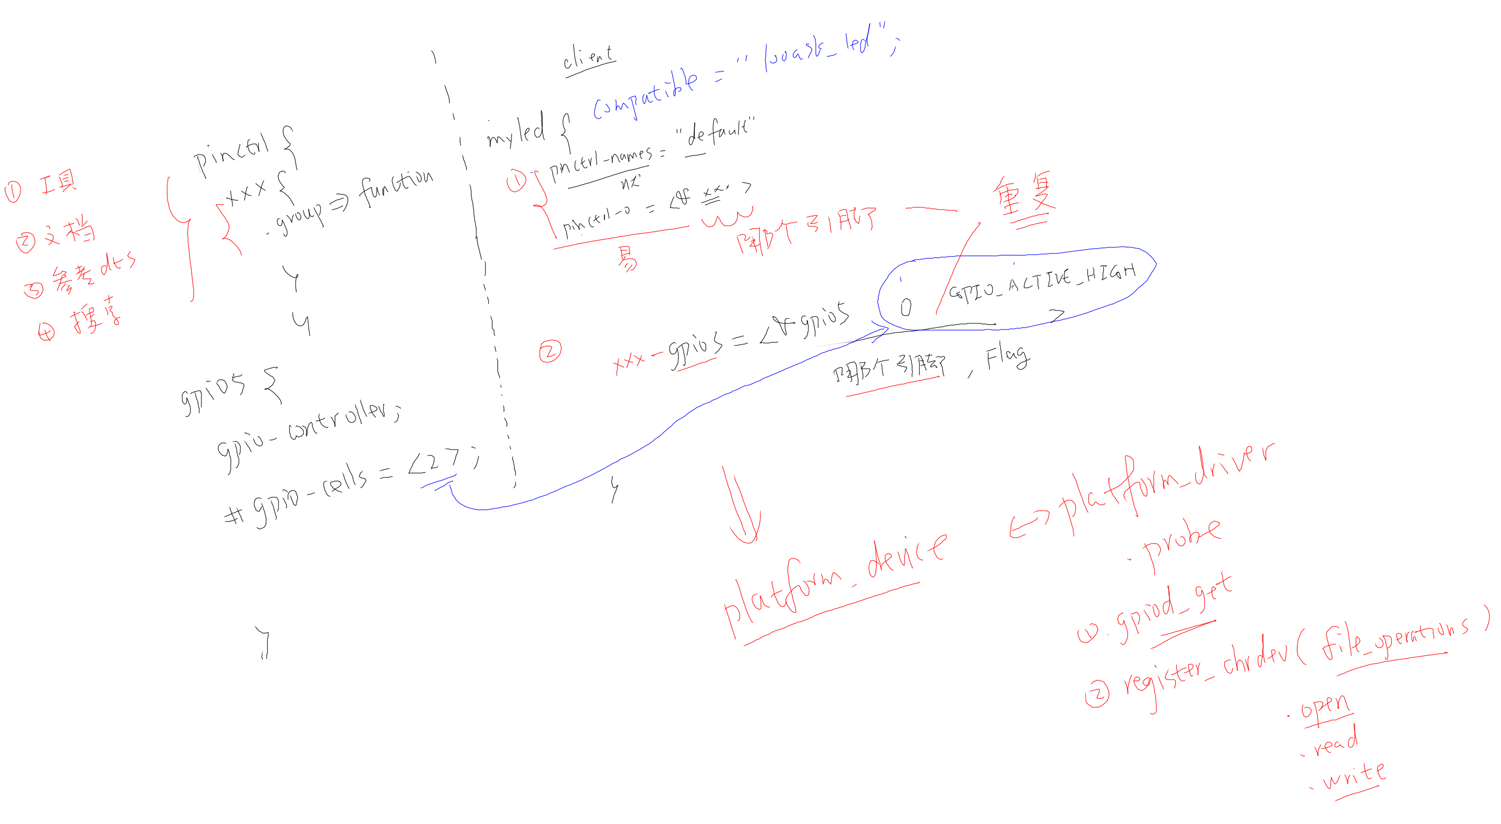 ① 工具
② 文档
③ 参考dts
④ 搜索
pinctrl {
xxx {
.group => function
}
}
gpio5 {
gpio-controller;
#gpio-cells = <2>;
}
client
myled {
compatible = "100ask_led";
① pinctrl-names = "default"
pinctrl-0 = <& xxx >
易
用哪个引脚
重复
② xxx-gpios = <&gpio5 0 GPIO_ACTIVE_HIGH >
用哪个引脚, Flag
}
platform_device <-> platform_driver
.probe
①. gpiod_get
② register_chrdev( file_operations )
.open
.read
.write